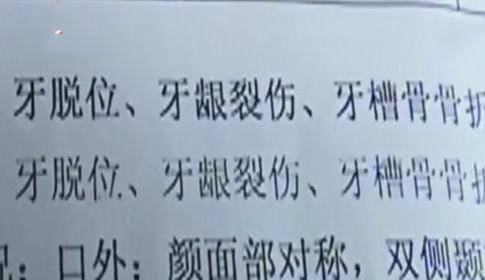 牙脱位、牙龈裂伤、牙槽骨骨
牙脱位、牙龈裂伤、牙槽骨骨
：口外：颜面部对称，双侧颞